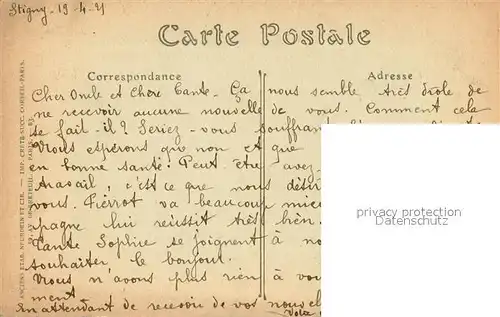 Stigny - 19 - 4 - 21
Carte Postale
Correspondance
Adresse
Cher Oncle et Chère Tante - Ça nous semble très drôle de
ne recevoir aucune nouvelle de vous. Comment cela
se fait - il ? Seriez - vous souffrant
Nous espérons que non et que
en bonne santé. Peut être avez
travail, c'est ce que nous désir
vous. Pierrot va beaucoup mieu
pagne lui réussit très bien.
Tante Sophie se joignent à no
souhaiter le bonjour.
Nous n'avons plus rien à vous
ment
En attendant de recevoir de vos nouvel
privacy protection
Datenschutz